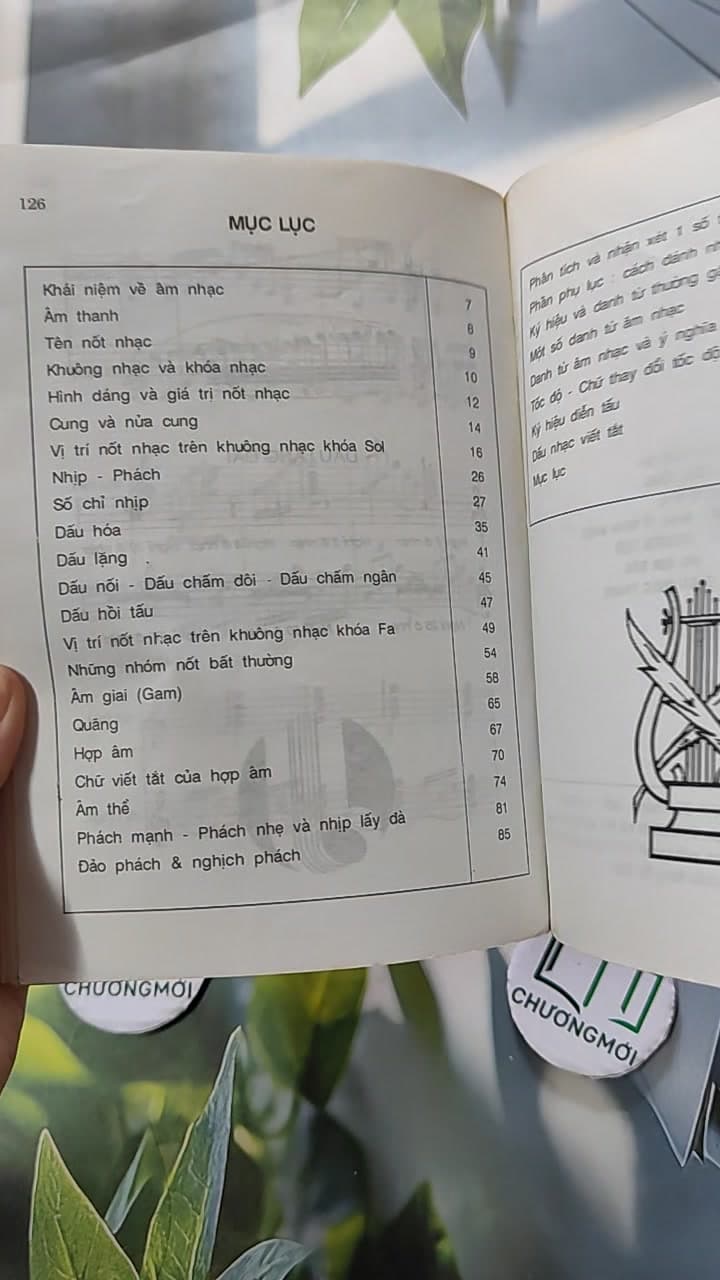 126
MỤC LỤC
Khái niệm về âm nhạc 7
Âm thanh 8
Tên nốt nhạc 9
Khuông nhạc và khóa nhạc 10
Hình dáng và giá trị nốt nhạc 12
Cung và nửa cung 14
Vị trí nốt nhạc trên khuông nhạc khóa Sol 16
Nhịp - Phách 26
Số chỉ nhịp 27
Dấu hóa 35
Dấu lặng 41
Dấu nối - Dấu chấm dôi - Dấu chấm ngân 45
Dấu hồi tấu 47
Vị trí nốt nhạc trên khuông nhạc khóa Fa 49
Những nhóm nốt bất thường 54
Âm giai (Gam) 58
Quãng 65
Hợp âm 67
Chữ viết tắt của hợp âm 70
Âm thể 74
Phách mạnh - Phách nhẹ và nhịp lấy đà 81
Đảo phách & nghịch phách 85
Phân tích và nhận xét 1 số
Phần phụ lục : cách đánh
Ký hiệu và danh từ thường
Một số danh từ âm nhạc
Danh từ âm nhạc và ý nghĩa
Tốc độ - Chữ thay đổi tốc độ
Ký hiệu diễn tấu
Dấu nhạc viết tắt
Mục lục
CHƯƠNGMỚI
CHƯƠNGMỚI